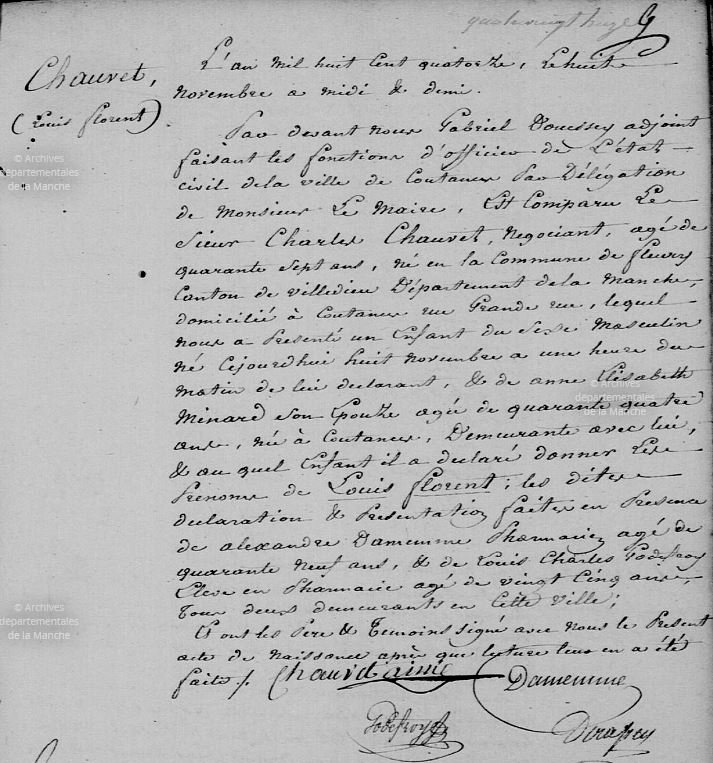 quatrevingt treize
Chauvet,
(Louis florent)
L'an mil huit Cent quatorze, Le huit
novembre a midi & demi.
Par devant nous Gabriel Doussey adjoint
faisant les fonctions d'officier de L'état
civil dela ville de Coutances Par Délégation
de Monsieur Le Maire, Est Comparu Le
Sieur Charles Chauvet, Negociant, agé de
quarante Sept ans, né en la Commune de fleury
Canton de villedieu Département dela Manche,
domicilié à Coutances rue Grande rue, lequel
nous a Presenté un Enfant du Sexe Masculin
né Cejourdhui huit novembre a une heure du
matin de lui declarant, & de anne Elisabeth
Minard Son Epouze agée de quarante quatre
ans, née à Coutances, Demeurante avec lui,
& au quel Enfant il a declaré donner Les
Prenoms de Louis florent; les dites
declaration & Presentation faites en Presence
de alexandre Damemme Pharmacien agé de
quarante Neuf ans, & de Louis Charles Godefroy
Eleve en Pharmacie agé de vingt Cinq ans,
Tous deux demeurants en Cette Ville;
Et ont les Père & Temoins signé avec Nous le Present
acte de Naissance après que lecture leur en a été
faite /.
Chauvet ainé
Damemme
Godefroy
Doussey
© Archives
départementales
de la Manche
© Archives
départementales
de la Manche
© Archives
départementales
de la Manche